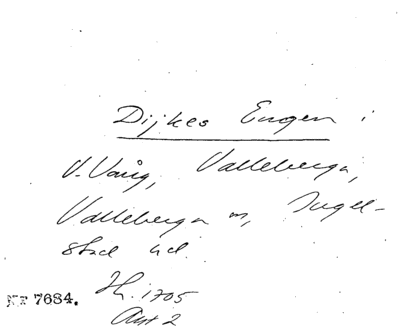 Dijkes Engen i
V. Vång, Valleberga,
Valleberga sn, Ingel-
stad hd.
NE 7684.
Jh. 1705
Akt 2